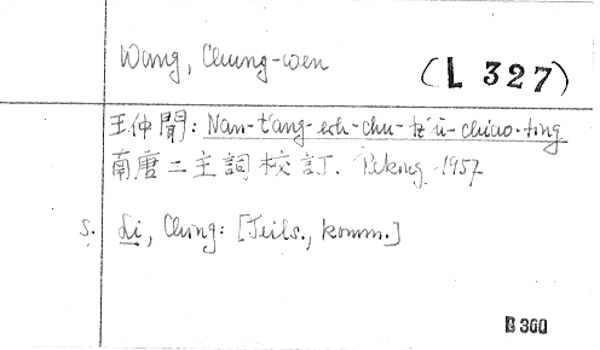 Wang, Chung-wen
(L 327)
王仲聞: Nan-t'ang-erh-chu-tz'ŭ-chiao-ting
南唐二主詞校訂. Peking 1957
s. Li, Ching: [Teils., komm.]
B 360